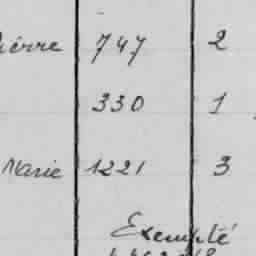 Pierre 747 2
330 1
Marie 1221 3
Exempté